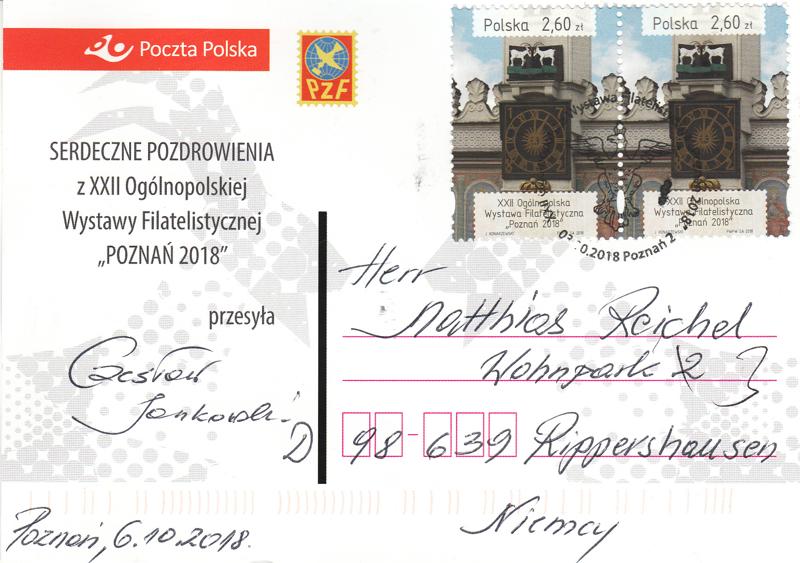 Poczta Polska
PZF
SERDECZNE POZDROWIENIA
z XXII Ogólnopolskiej
Wystawy Filatelistycznej
„POZNAŃ 2018”
przesyła
Czesław
Jankowski
Poznań, 6.10.2018.
Polska 2,60 zł
XXII Ogólnopolska
Wystawa Filatelistyczna
„Poznań 2018”
J. KONARZEWSKI PWPW S.A. 2018
Polska 2,60 zł
XXII Ogólnopolska
Wystawa Filatelistyczna
„Poznań 2018”
J. KONARZEWSKI PWPW S.A. 2018
.10.2018 Poznań 2
Herr
Matthias Reichel
Wohnpark 2
D 98-639 Rippershausen
Niemcy